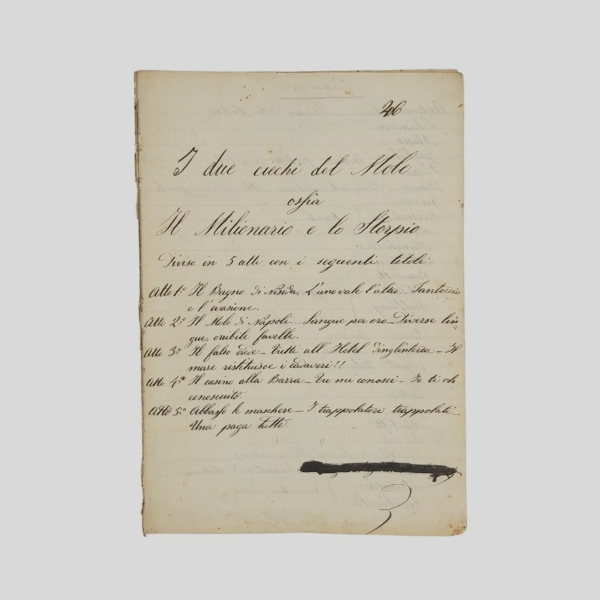 26
I due ciechi del Molo
ossia
Il Milionario e lo Storpio
Diviso in 5 atti con i seguenti titoli
Atto 1º Il Bagno di Nisida. L'uno vale l'altro. Santoccio
e l'evasione.
Atto 2º Il Molo di Napoli. Sangue per oro – Diverse lin
gue, orribile favelle.
Atto 3º Il falso – Tutti all'Hotel d'Inglinterra – Il
mare ristituisce i cadaveri!!
Atto 4º Il casino alla Barra – Tu mi conosci – Io ti ho
conosciuto.
Atto 5º Abbasso le maschere – I trappolatori trappolati –
Una paga tutte.